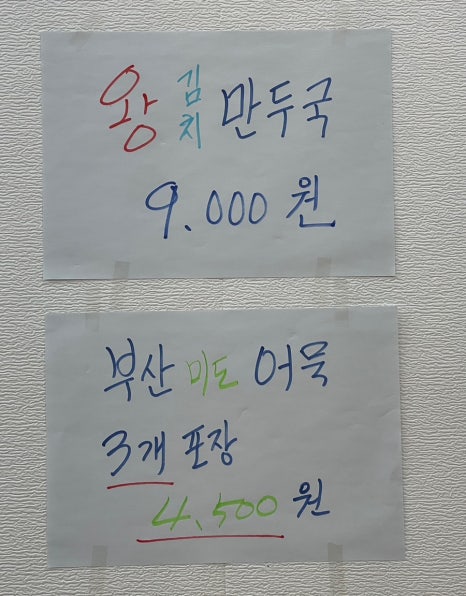 왕 김치 만두국
9.000 원
부산 미도 어묵
3개 포장
4.500 원